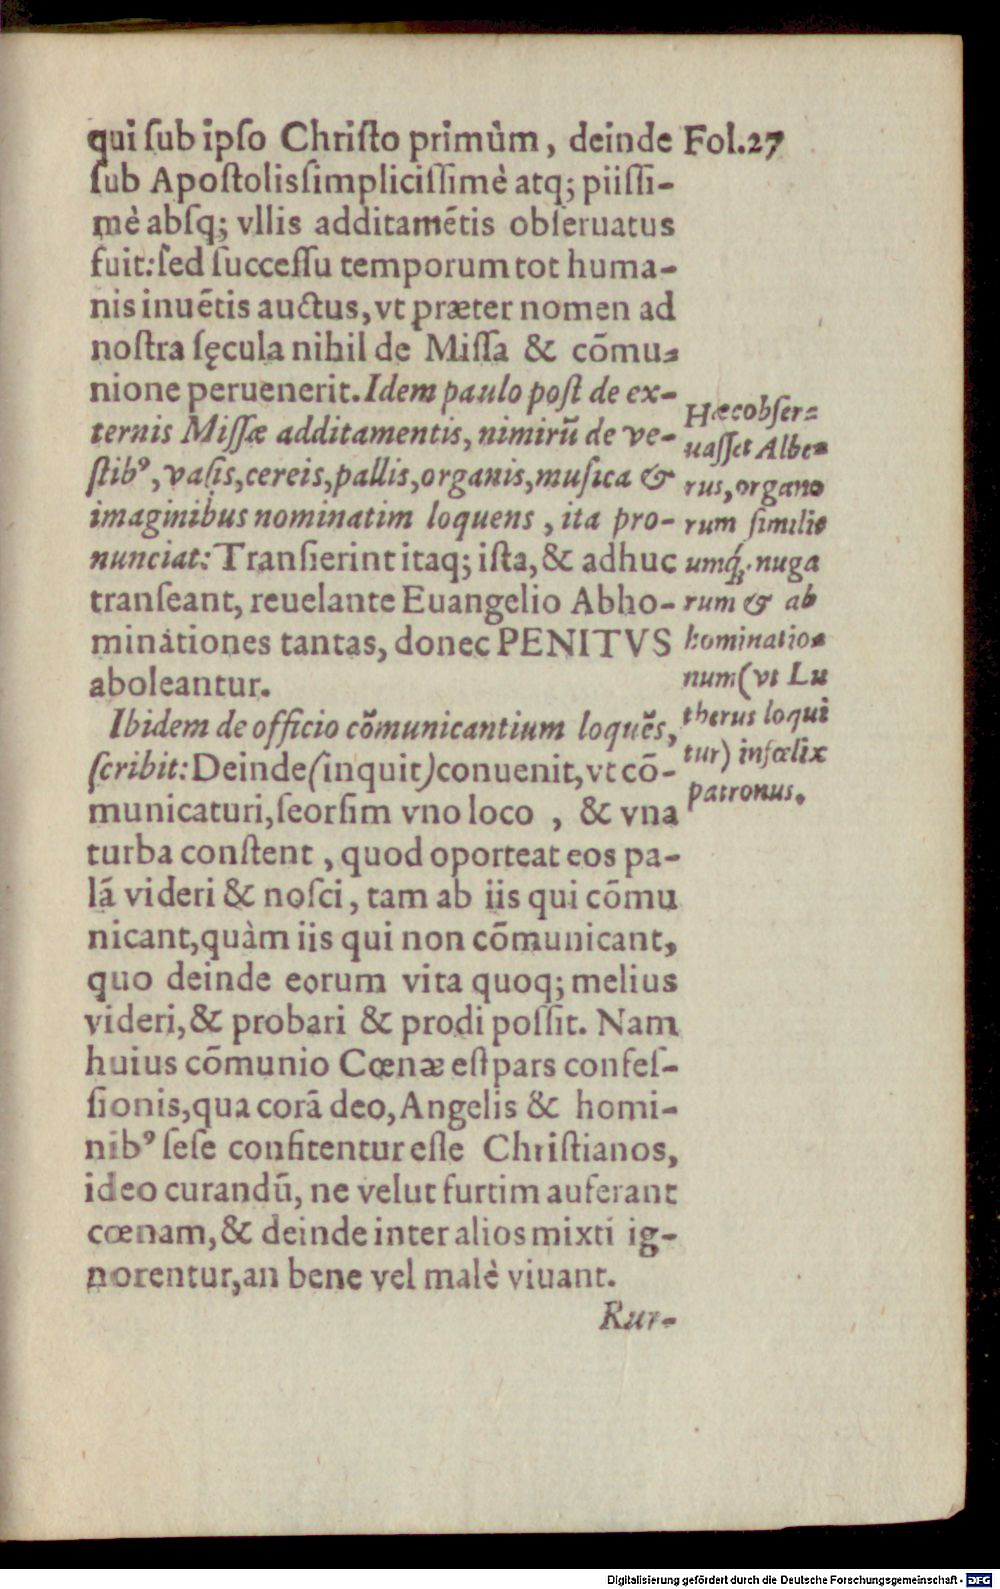 qui ſub ipſo Chriſto primùm, deinde Fol.27
ſub Apoſtolis ſimpliciſſimè atq; piiſſi-
mè abſq; vllis additamẽtis obſeruatus
fuit: ſed ſucceſſu temporum tot huma-
nis inuẽtis auctus, vt præter nomen ad
noſtra ſęcula nihil de Miſſa & cõmu-
nione peruenerit. Idem paulo poſt de ex-
ternis Miſſæ additamentis, nimirũ de ve-
ſtibꝰ, vaſis, cereis, pallis, organis, muſica &
imaginibus nominatim loquens, ita pro-
nunciat: Tranſierint itaq; iſta, & adhuc
tranſeant, reuelante Euangelio Abho-
minationes tantas, donec PENITVS
aboleantur.
Ibidem de officio cõmunicantium loquẽs,
ſcribit: Deinde (inquit) conuenit, vt cõ-
municaturi, ſeorſim vno loco, & vna
turba conſtent, quod oporteat eos pa-
lã videri & noſci, tam ab iis qui cõmu
nicant, quàm iis qui non cõmunicant,
quo deinde eorum vita quoq; melius
videri, & probari & prodi poſſit. Nam
huius cõmunio Cœnæ eſt pars confeſ-
ſionis, qua corã deo, Angelis & homi-
nibꝰ ſeſe confitentur eſſe Chriſtianos,
ideo curandũ, ne velut furtim auferant
cœnam, & deinde inter alios mixti ig-
norentur, an bene vel malè viuant.
Rur-
Hæc obſer-
uaſſet Albe-
rus, organo
rum ſimili-
umq́; nuga
rum & ab
hominatio-
num (vt Lu
therus loqui
tur) infœlix
patronus.
Digitalisierung gefördert durch die Deutsche Forschungsgemeinschaft - DFG